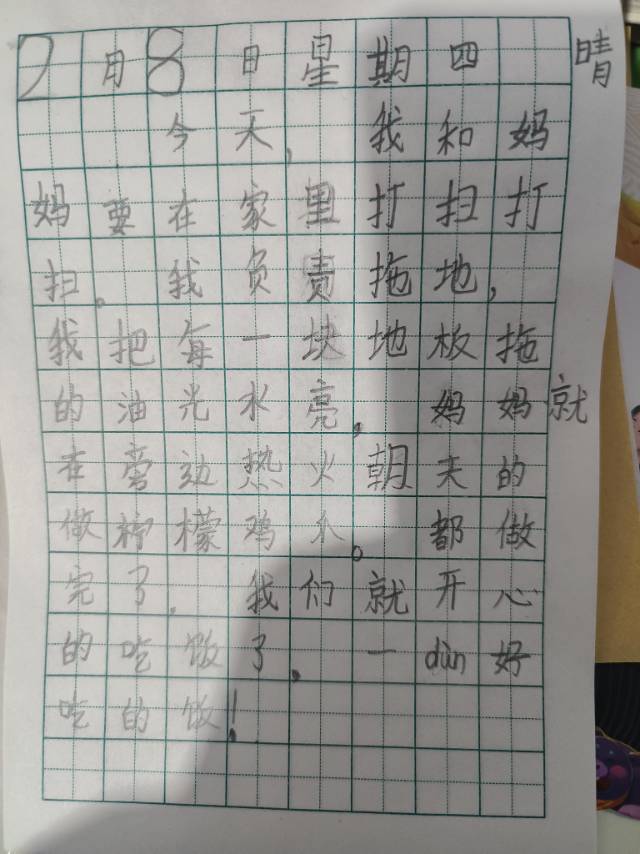 2月8日星期四 晴
今天,我和妈
妈要在家里打扫打
扫。我负责拖地,
我把每一块地板拖
的油光水亮,妈妈就
在旁边热火朝天的
做柠檬鸡爪。都做
完了,我们就开心
的吃饭了,一dùn好
吃的饭!